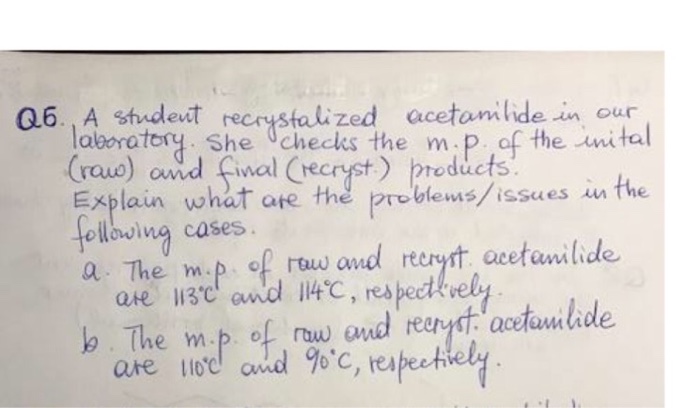 Q6. A student recrystalized acetanilide in our
laboratory. She checks the m.p. of the inital
(raw) and final (recryst.) products.
Explain what are the problems/issues in the
following cases.
a. The m.p. of raw and recryst. acetanilide
are 113°C and 114°C, respectively.
b. The m.p. of raw and recryst. acetanilide
are 110°C and 90°C, respectively.